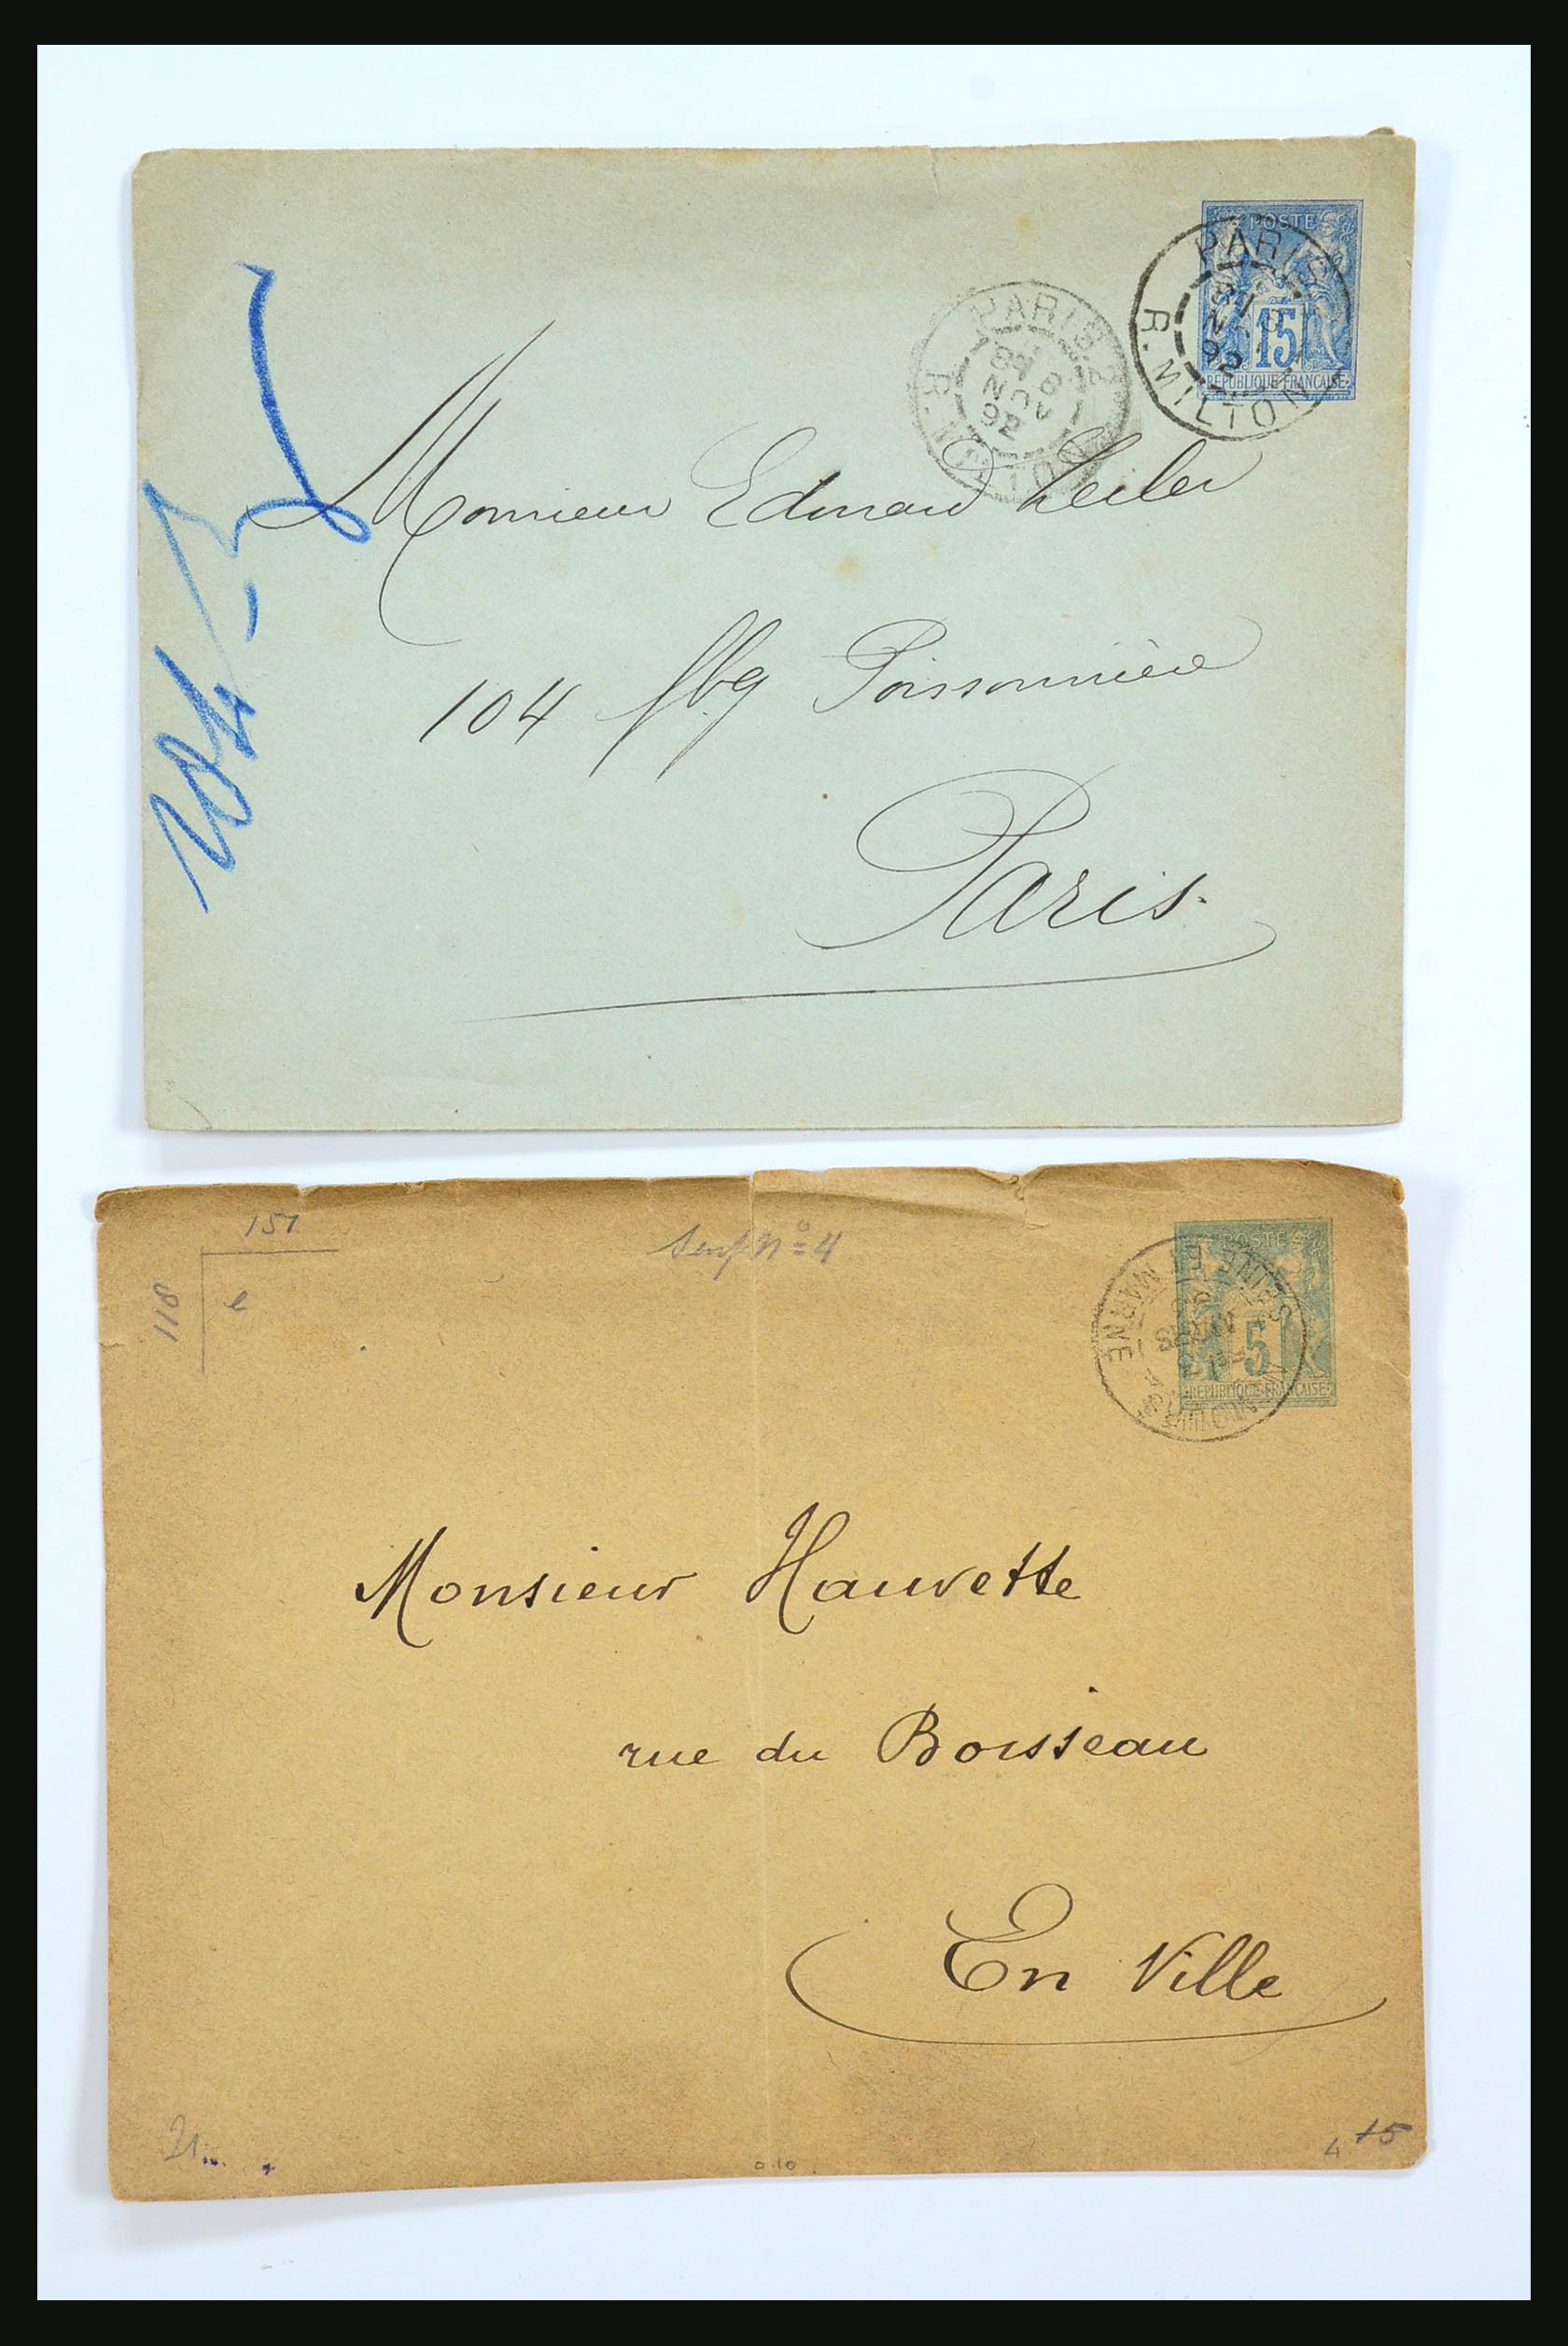 POSTE
15
REPUBLIQUE FRANCAISE
PARIS
8
NOV
92
R. MILTON
PARIS 2
8E 8
NOV
92
R. MILTON
Monsieur Edouard
104 fbg Poissonnière
Paris.
104
151
118
e
Senf No 4
POSTES
5
REPUBLIQUE FRANCAISE
SEINE ET MARNE
Monsieur Hauvette
rue du Boisseau
En Ville
21
0.10
4 15